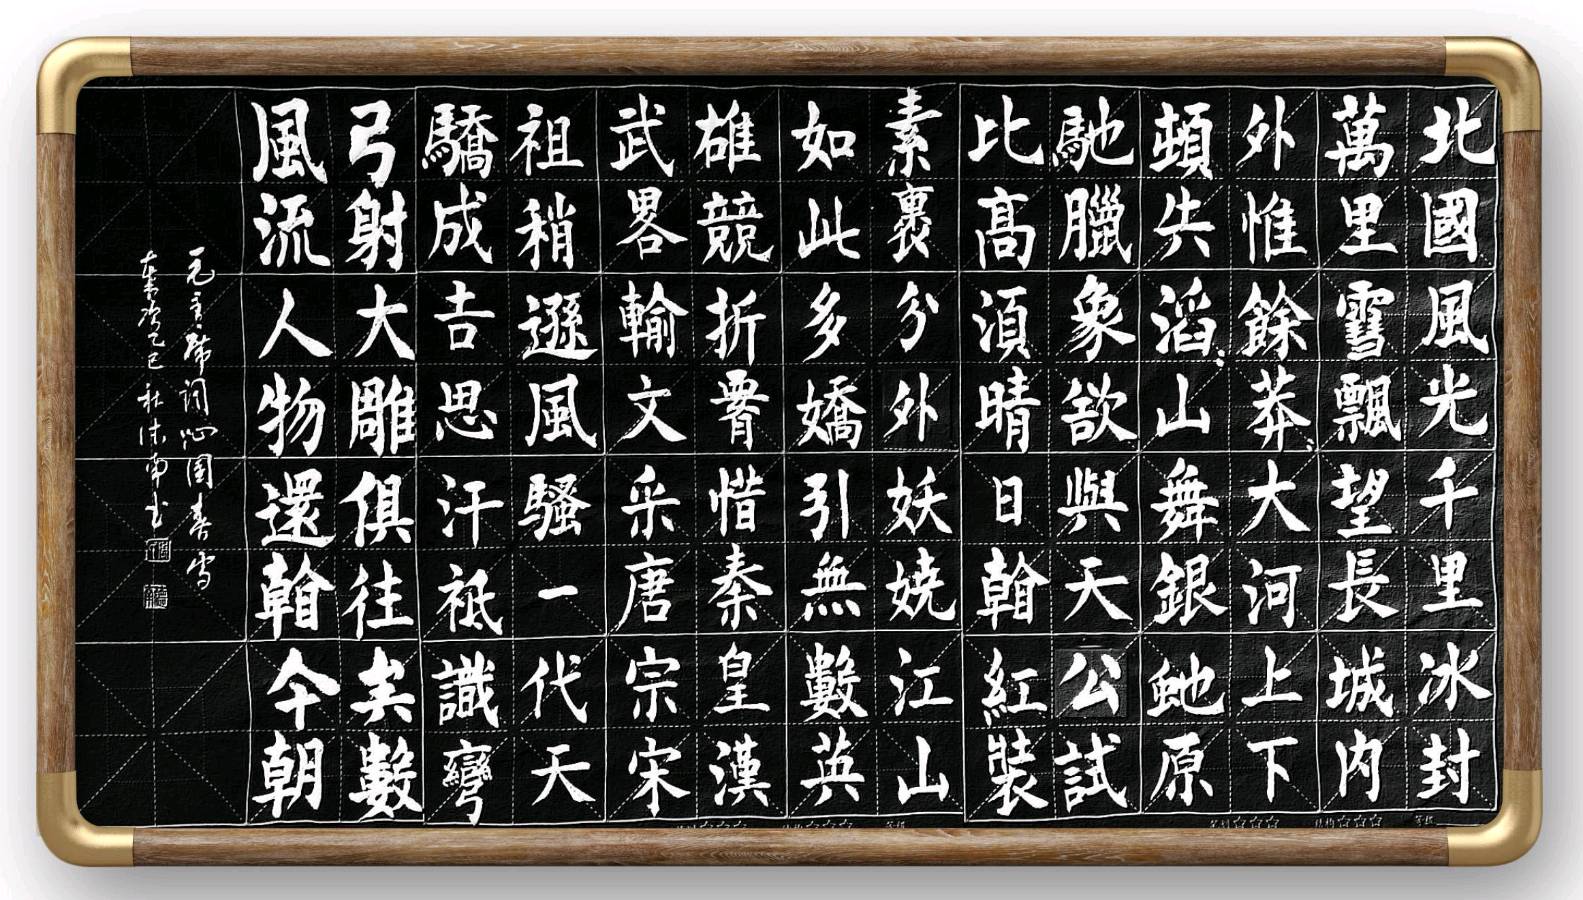 北國風光千里冰封
萬里雪飄望長城内
外惟餘莽〻大河上下
頓失滔〻山舞銀虵原
馳臘象欲與天公試
比高湏晴日翰紅裝
素裹分外妖嬈江山
如此多嬌引無數英
雄競折腰惜秦皇漢
武畧輸文采唐宗宋
祖稍遜風騷一代天
驕成吉思汗祗識彎
弓射大雕俱往矣數
風流人物還翰今朝
毛主席詞沁園春雪
歲次乙巳秋